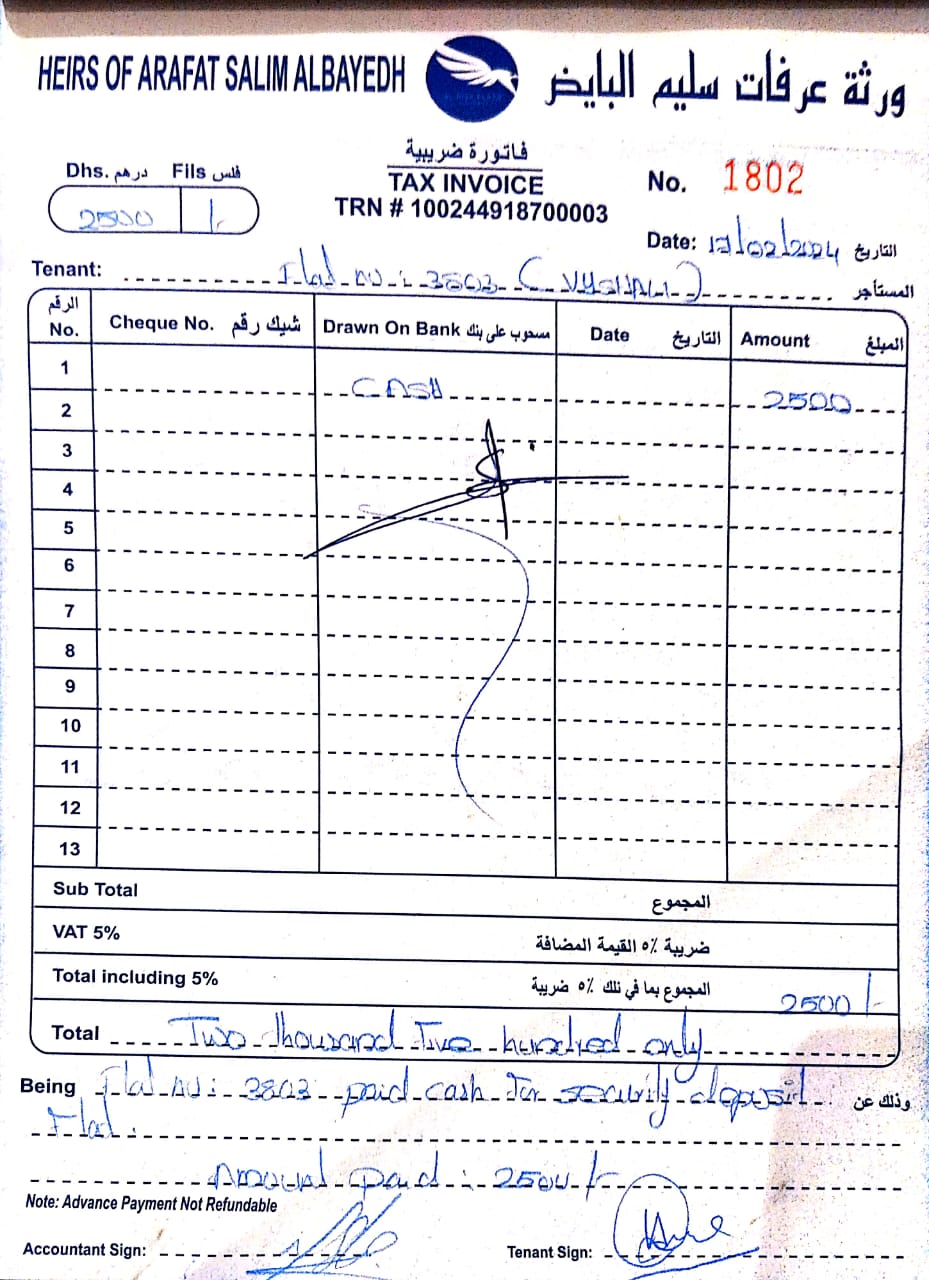 HEIRS OF ARAFAT SALIM ALBAYEDH
ورثة عرفات سليم البايض
فاتورة ضريبية
TAX INVOICE
TRN # 100244918700003
Dhs. درهم Fils فلس
2500 /-
No. 1802
Date: 17/02/2024 التاريخ
Tenant: Flat NO: 3803 (VYSHALI) المستأجر
الرقم No. Cheque No. شيك رقم Drawn On Bank مسحوب على بنك Date التاريخ Amount المبلغ
1 CASH 2500
2
3
4
5
6
7
8
9
10
11
12
13
Sub Total المجموع
VAT 5% ضريبة ٥٪ القيمة المضافة
Total including 5% المجموع بما في ذلك ٥٪ ضريبة 2500/-
Total Two thousand Five hundred only
Being Flat NO: 3803 paid cash for security deposit وذلك عن
Flat.
Amount paid: 2500/-
Note: Advance Payment Not Refundable
Accountant Sign: Tenant Sign: